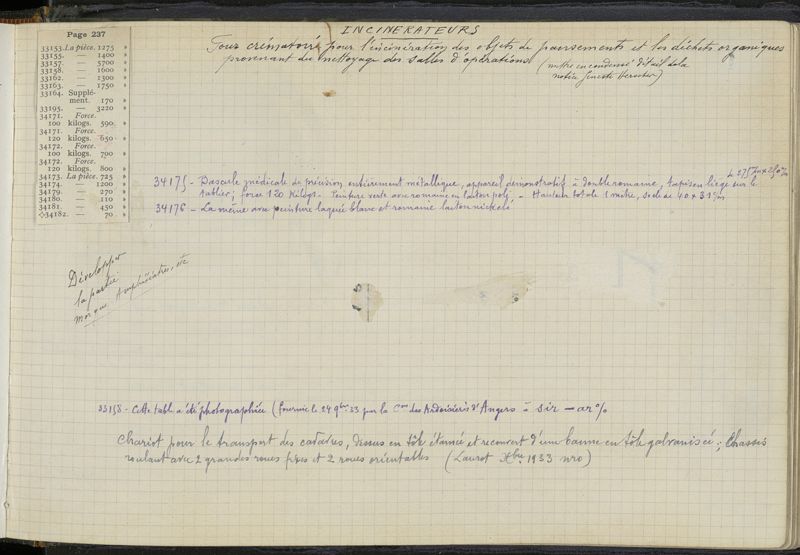 Page 237
33153. La pièce. 1275 »
33155. — 1400 »
33157. — 5700 »
33158. — 1600 »
33162. — 1300 »
33163. — 1750 »
33164. Supplé-
ment. 170 »
33195. — 3220 »
34171. Force.
100 kilogs. 590 »
34171. Force.
120 kilogs. 650 »
34172. Force.
100 kilogs. 700 »
34172. Force.
120 kilogs. 800 »
34173. La pièce. 725 »
34174. — 1200 »
34179. — 270 »
34180. — 110 »
34181. — 450 »
34182. — 70 »
INCINÉRATEURS
Four crématoire pour l'incinération des objets de pansements et les déchets organiques
provenant du nettoyage des salles d'opérations (mettre en condensé détail de la
notice Geneste Herscher)
34175 - Bascule médicale de précision entièrement métallique, appareil démonstratif à double romaine, tapis en liège sur le
tablier; force 120 Kilogs. Peinture verte avec romaine en laiton poli - Hauteur totale 1 mètre, socle de 40 x 31
34176 - La même avec peinture laquée blanc et romaine laiton nickelé
Développer
la partie
Morgue Amphithéâtres, etc
33158 - Cette table a été photographiée (fournie le 24 9bre 33 par la Cie des Ardoisières d'Angers à sir — ar %
Chariot pour le transport des cadavres, dessus en tôle étamée et recouvert d'une banne en tôle galvanisée; Chassis
roulant avec 2 grandes roues fixes et 2 roues orientables (Laurot Xbre 1933 nro)